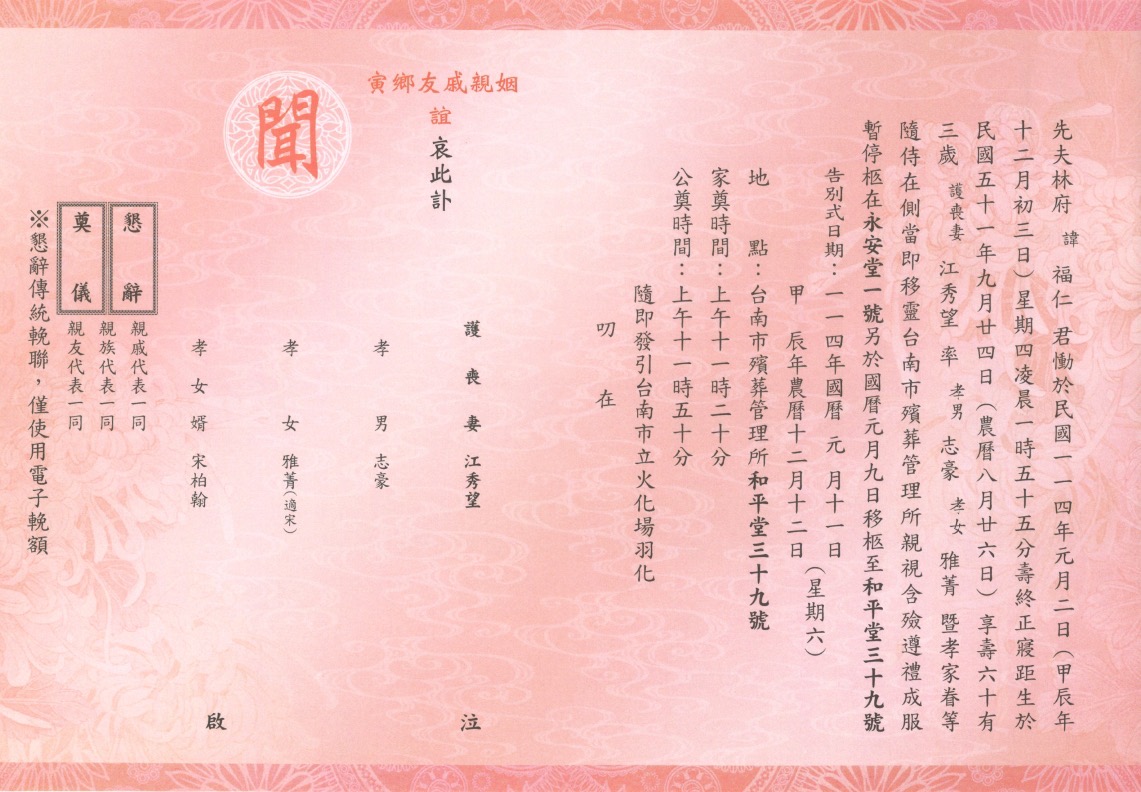 先夫林府 諱 福仁 君慟於民國一一四年元月二日（甲辰年
十二月初三日）星期四凌晨一時五十五分壽終正寢距生於
民國五十一年九月廿四日（農曆八月廿六日）享壽六十有
三歲 護喪妻 江秀望 率 孝男 志豪 孝女 雅菁 暨孝家眷等
隨侍在側當即移靈台南市殯葬管理所親視含殮遵禮成服
暫停柩在永安堂一號另於國曆元月九日移柩至和平堂三十九號
告別式日期：一一四年國曆 元 月十一日
甲 辰年農曆十二月十二日（星期六）
地 點：台南市殯葬管理所和平堂三十九號
家奠時間：上午十一時二十分
公奠時間：上午十一時五十分
隨即發引台南市立火化場羽化
叨 在
姻親戚友鄉寅
誼 哀此訃
聞
護喪妻 江秀望 泣
孝男 志豪
孝女 雅菁（適宋）
孝女婿 宋柏翰 啟
懇辭
奠儀
親戚代表一同
親族代表一同
親友代表一同
※懇辭傳統輓聯，僅使用電子輓額